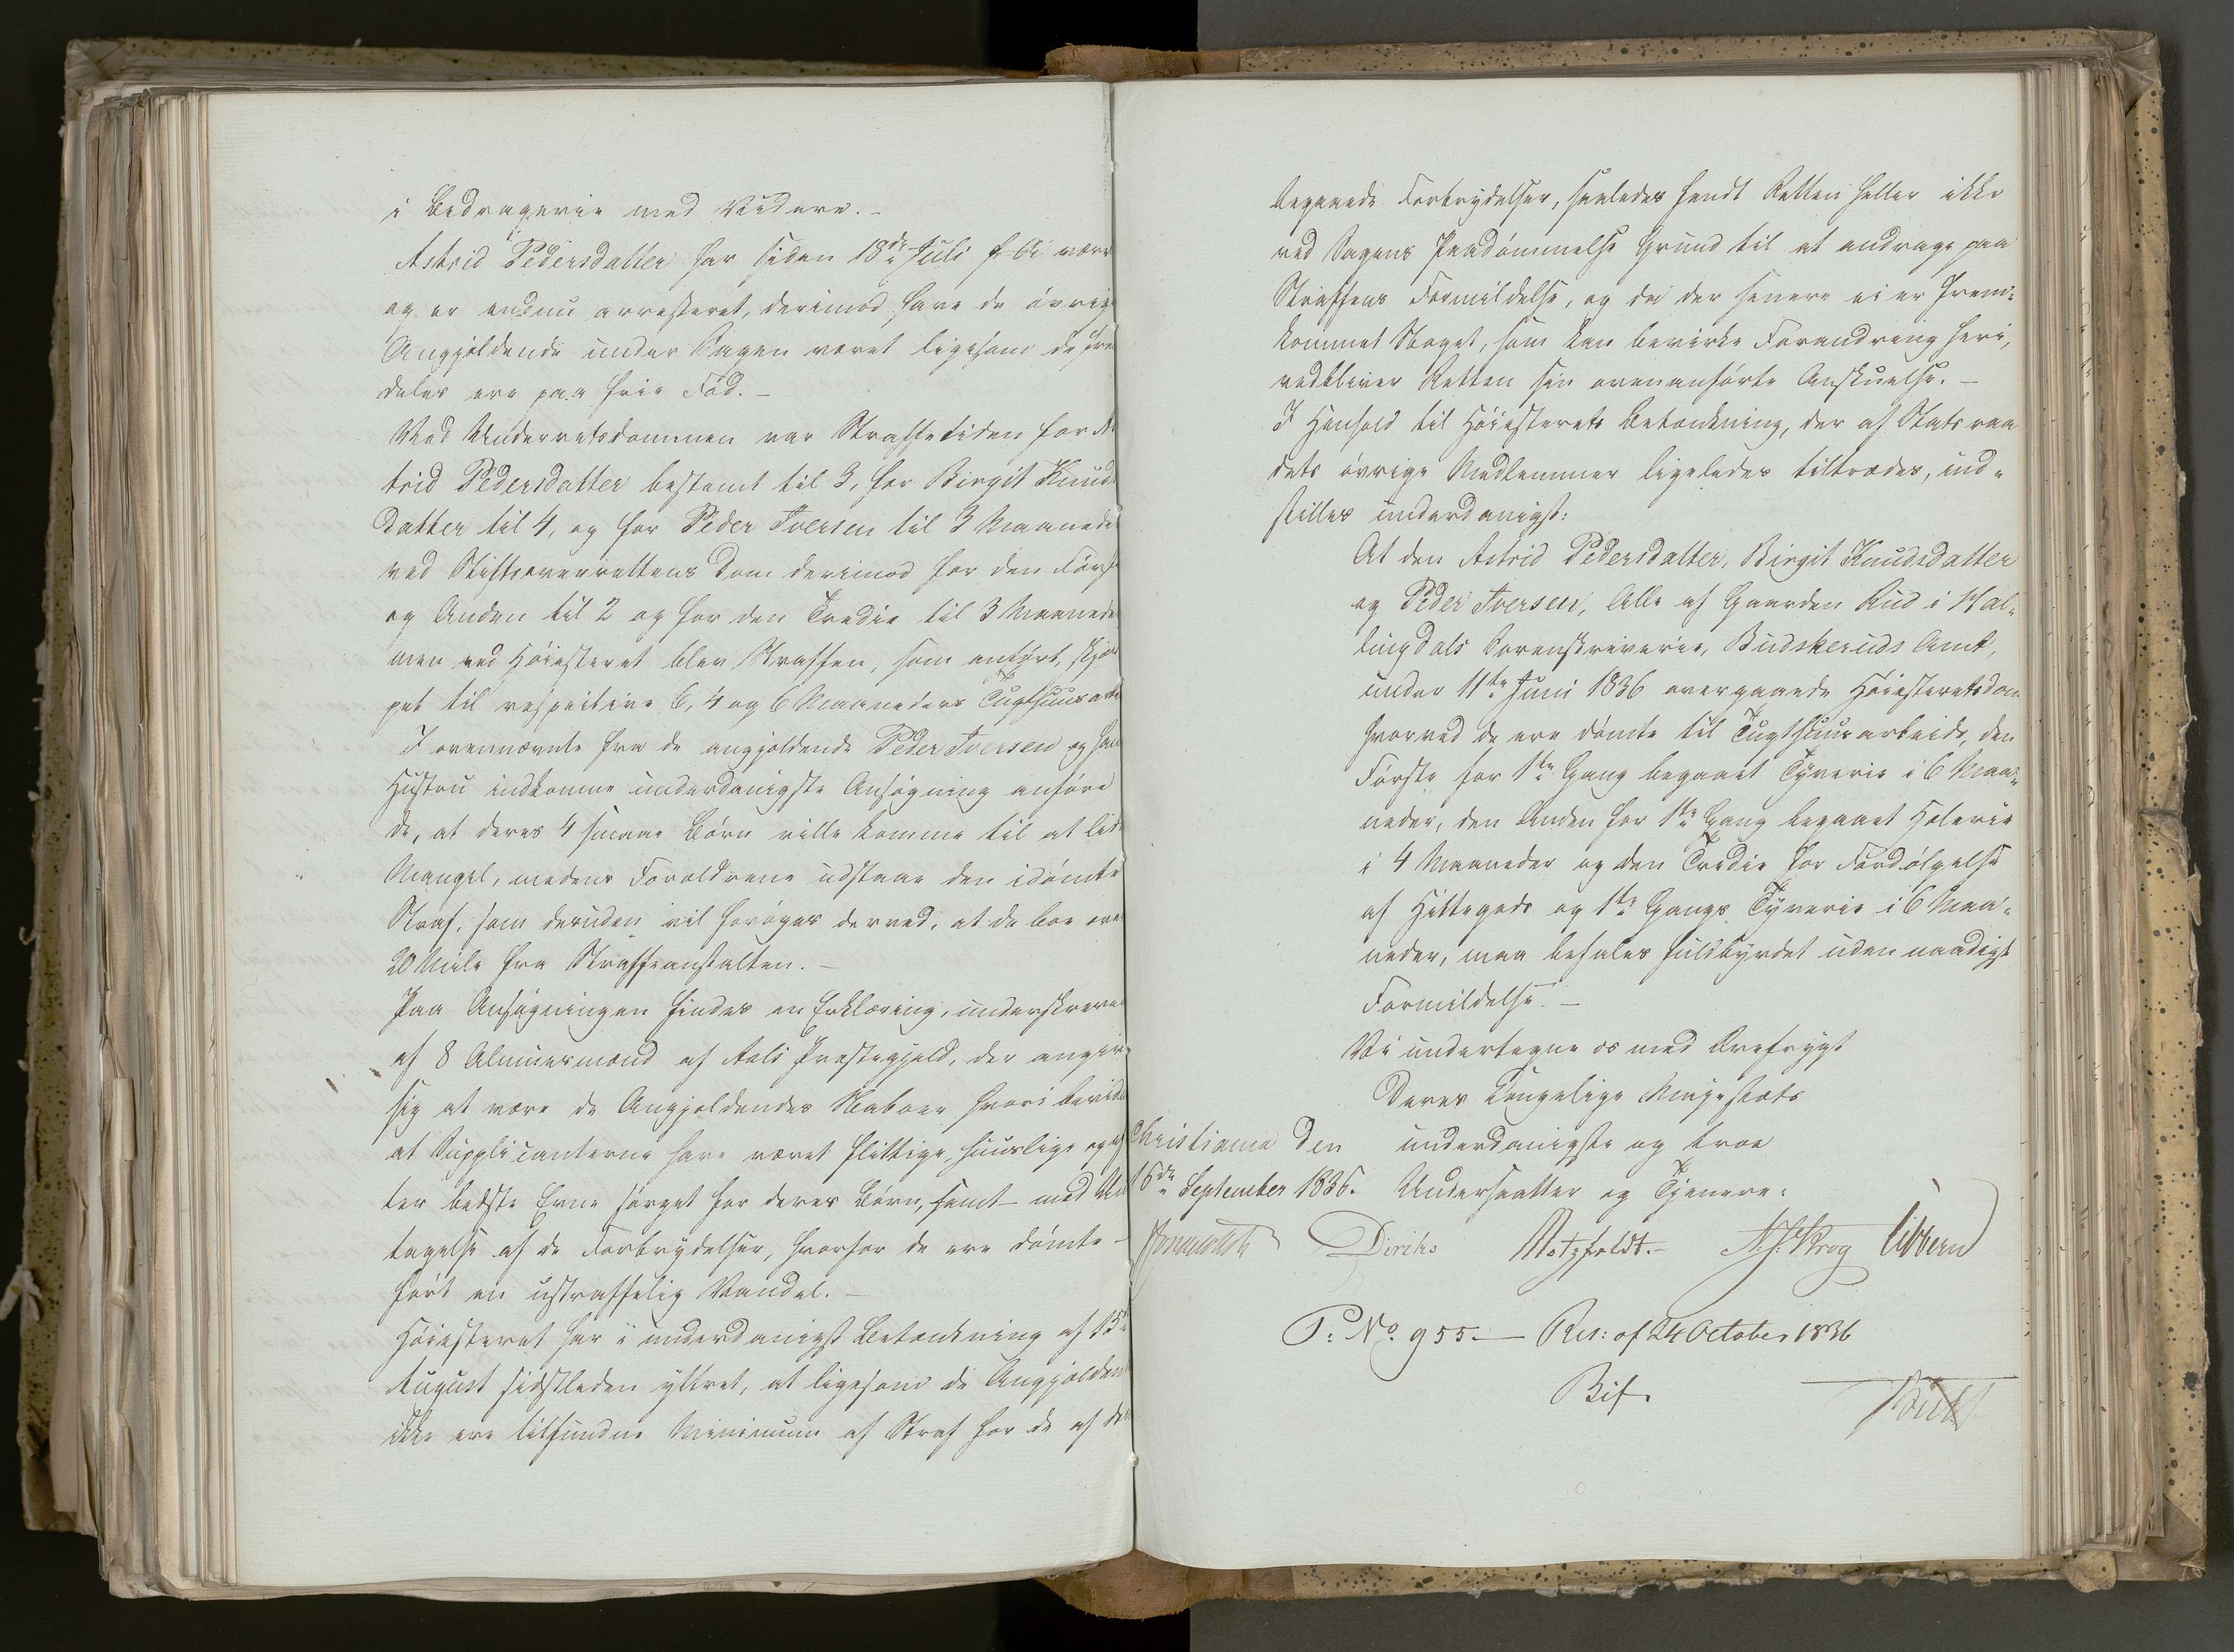 i Bedragerie med Videre. –
Astrid Pedersdatter har siden 18de Juli f. A. være
og er endnu arresteret, derimod have de øvrig
Angjeldende under Sagen været ligesom de frem
deles ere paa frie Fod. –
Ved Underretsdommen var Straffetiden for As
trid Pedersdatter bestemt til 3, for Birgit Knuds
datter til 4, og for Peder Iversen til 3 Maaneder
ved Stiftsoverrettens Dom derimod for den Første
og Anden til 2 og for den Tredie til 3 Maaneder
men ved Høiesteret blev Straffen, som anført, skjær
pet til respective 6, 4 og 6 Maaneders Tugthuusarbe
I ovennævnte fra de angjeldende Peder Iversen og hans
Hustru indkomne underdanigste Ansøgning anføre
de, at deres 4 smaae Børn ville komme til at lide
Mangel, medens Forældrene udstaae den idømte
Straf, som desuden vil forøges derved, at de boe over
20 Mile fra Straffeanstalten. –
Paa Ansøgningen findes en Erklæring, underskreven
af 8 Almuesmænd af Aals Præstegjeld, der angive
sig at være de Angjeldendes Naboer hvori bevid
at Supplicanterne have været flittige, huuslige og ef
ter bedste Evne sørget for deres Børn, samt med Un
tagelse af de Forbrydelser, hvorfor de ere dømte –
ført en ustraffelig Vandel. –
Høiesteret har i underdanigst Betænkning af 15de
August sidstleden yttret, at ligesom de Angjelden
ikke ere tilfundne Minimum af Straf for de af dem
begaaede Forbrydelser, saaledes fandt Retten heller ikke
ved Sagens Paadømmelse Grund til at andrage paa
Straffens Formildelse, og da der senere ei er frem-
kommet Noget, som kan bevirke Forandring heri,
vedbliver Retten sin ovenanførte Anskuelse. –
I Henhold til Høiesterets Betænkning, der af Statsraa
dets øvrige Medlemmer ligeledes tiltrædes, ind-
stilles underdanigst:
At den Astrid Pedersdatter, Birgit Knudsdatter
og Peder Iversen, Alle af Gaarden Rud i Hal-
lingdals Sorenskriverie, Buskeruds Amt,
under 11te Juni 1836 overgaaede Høiesteretsdom
hvorved de ere dømte til Tugthuusarbeide, den
Første for 1ste Gang begaaet Tyverie i 6 Maa-
neder, den Anden for 1ste Gang begaaet Hæleri
i 4 Maaneder og den Tredie for Fordølgelse
af Hittegods og 1ste Gangs Tyverie i 6 Maa-
neder, maa befales fuldbyrdet uden naadigst
Formildelse. –
Vi undertegne os med Ærefrygt
Deres Kongelige Majestæts
Christiania den underdanigste og troe
16de September 1836. Undersaatter og Tjenere:
Diriks Motzfeldt. – Krog Sibbern
P: No. 955. – Res: af 24 October 1836
Bif.